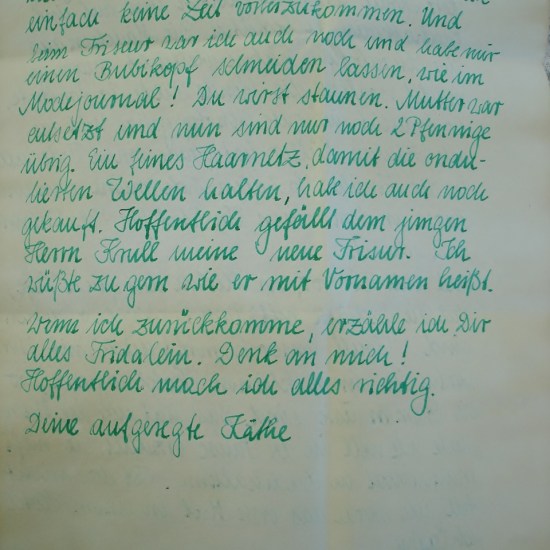 einfach keine Zeit vorherzukommen. Und
beim Friseur war ich auch noch und habe mir
einen Bubikopf schneiden lassen, wie im
Modejournal! Du wirst staunen. Mutter war
entsetzt und nun sind nur noch 2 Pfennige
übrig. Ein feines Haarnetz, damit die ondu-
lierten Wellen halten, habe ich auch noch
gekauft. Hoffentlich gefällt dem jungen
Herrn Krull meine neue Frisur. Ich
wüßte zu gern wie er mit Vornamen heißt.
Wenn ich zurückkomme, erzähle ich Dir
alles Fridalein. Denk an mich!
Hoffentlich mach ich alles richtig.
Deine aufgeregte Käthe